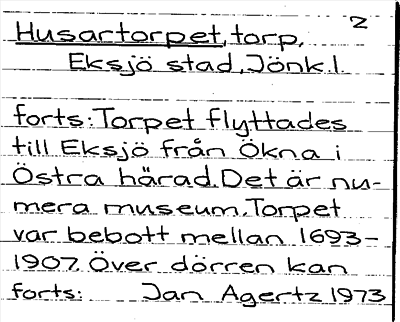 2
Husartorpet, torp,
Eksjö stad, Jönk.l.
forts: Torpet flyttades
till Eksjö från Ökna i
Östra härad. Det är nu-
mera museum. Torpet
var bebott mellan 1693-
1907. Över dörren kan
forts: Jan Agertz 1973